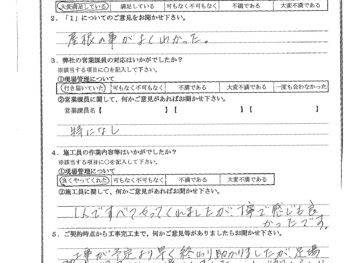 大変満足している 満足している 可もなく不可もなく 不満である 大変不満である
2．「1」についてのご意見をお聞かせ下さい。
屋根の事がよくわかった。
3．弊社の営業課員の対応はいかがでしたか？
※該当する項目に○を記入して下さい。
①現場管理について
行き届いていた 可もなく不可もなく 不満である 大変不満である 一度も会わなかった
②営業課員に関して、何かご意見があればお聞かせ下さい。
営業課員名【 】【 】【 】
特になし
4．施工員の作業内容等はいかがでしたか？
※該当する項目に○を記入して下さい。
①現場管理について
良くやってくれた 可もなく不可もなく 不満である 大変不満である
②施工員に関して、何かご意見があればお聞かせ下さい。
んですべてやってくれましたが、丁寧で感じも良
かったです。
5．ご契約時点から工事完工まで、何かご意見等がありましたらお聞かせ下さい。
工事が予定より早く終わり助かりましたが、足場